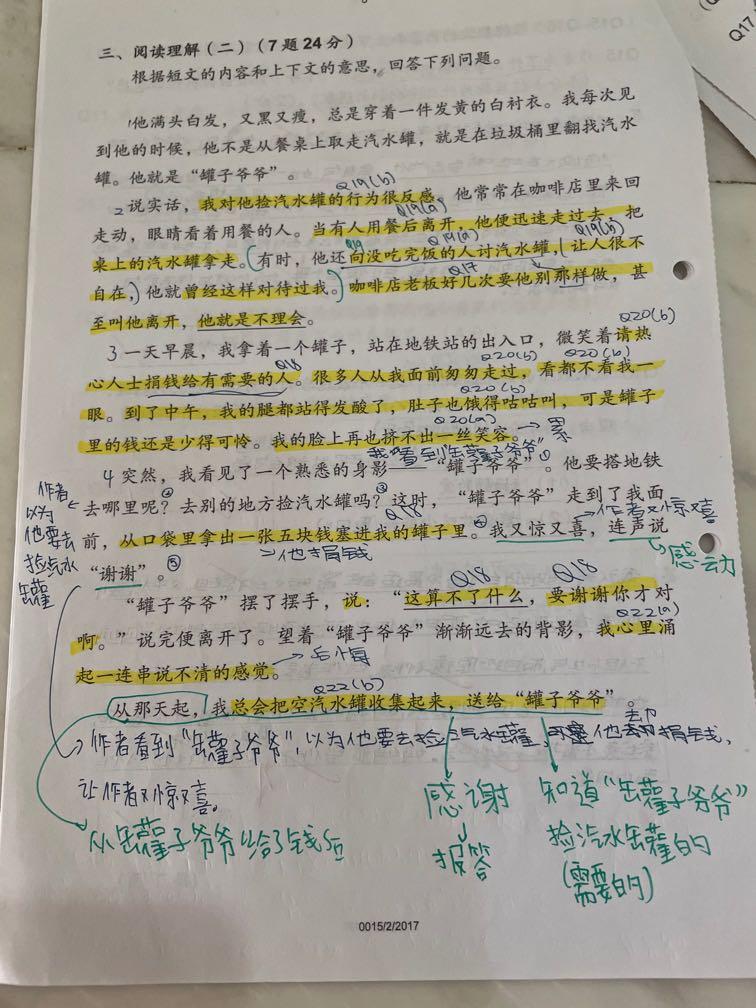 Q17
三、阅读理解(二)(7题24分)
根据短文的内容和上下文的意思,回答下列问题。
1他满头白发,又黑又瘦,总是穿着一件发黄的白衬衣。我每次见
到他的时候,他不是从餐桌上取走汽水罐,就是在垃圾桶里翻找汽水
罐。他就是“罐子爷爷”。
Q19(b)
2说实话,我对他捡汽水罐的行为很反感。他常常在咖啡店里来回
Q19(a)
走动,眼睛看着用餐的人。当有人用餐后离开,他便迅速走过去,把
Q19 Q19(a) Q19(b)
桌上的汽水罐拿走。(有时,他还向没吃完饭的人讨汽水罐,(让人很不
Q17
自在,)他就曾经这样对待过我。)咖啡店老板好几次要他别那样做,甚
至叫他离开,他就是不理会。
Q20(b)
3一天早晨,我拿着一个罐子,站在地铁站的出入口,微笑着请热
Q18 Q20(b) Q20(b)
心人士捐钱给有需要的人。很多人从我面前匆匆走过,看都不看我一
Q20(b)
眼。到了中午,我的腿都站得发酸了,肚子也饿得咕咕叫,可是罐子
Q20(a)
里的钱还是少得可怜。我的脸上再也挤不出一丝笑容。→累
我看到“罐子爷爷”①
4突然,我看见了一个熟悉的身影——“罐子爷爷”。他要搭地铁
② ③
去哪里呢?去别的地方捡汽水罐吗?这时,“罐子爷爷”走到了我面
作者
以为
他要去
捡汽水
罐
Q18 ④ 作者又惊又喜
前,从口袋里拿出一张五块钱塞进我的罐子里。我又惊又喜,连声说
→他捐钱
感动
“谢谢”。⑤
Q18 Q18
“罐子爷爷”摆了摆手,说:“这算不了什么,要谢谢你才对
Q22(a)
啊。”说完便离开了。望着“罐子爷爷”渐渐远去的背影,我心里涌
起一连串说不清的感觉。→后悔
Q22(b)
从那天起,我总会把空汽水罐收集起来,送给“罐子爷爷”。
作者看到“罐子爷爷”,以为他要去捡汽水罐,他捐钱,
让作者又惊又喜。
从罐子爷爷给了钱后
感谢
报答
知道“罐子爷爷”
捡汽水罐的
(需要的)
0015/2/2017